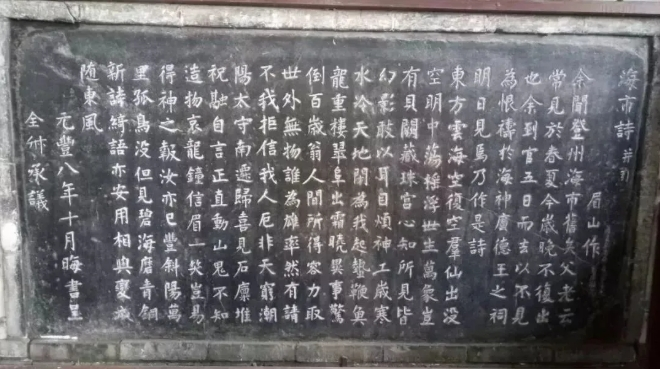 海市詩 并引
眉山作
余聞登州海市舊矣父老云
常見於春夏今歲晚不復出
也余到官五日而去以不見
為恨禱於海神廣德王之祠
明日見焉乃作是詩
東方雲海空復空羣仙出没
空明中蕩揺浮世生萬象豈
有貝闕藏珠宮心知所見皆
幻影敢以耳目煩神工歲寒
水冷天地閉為我起蟄鞭魚
龍重樓翠阜出霜曉異事驚
倒百歲翁人間所得容力取
世外無物誰為雄率然有請
不我拒信我人厄非天窮潮
陽太守南遷歸喜見石廩堆
祝融自言正直動山鬼不知
造物哀龍鐘信眉一笑豈易
得神之報汝亦已豐斜陽萬
里孤鳥没但見碧海磨青銅
新詩綺語亦安用相與變滅
随東風
元豐八年十月晦書呈
全叔承議